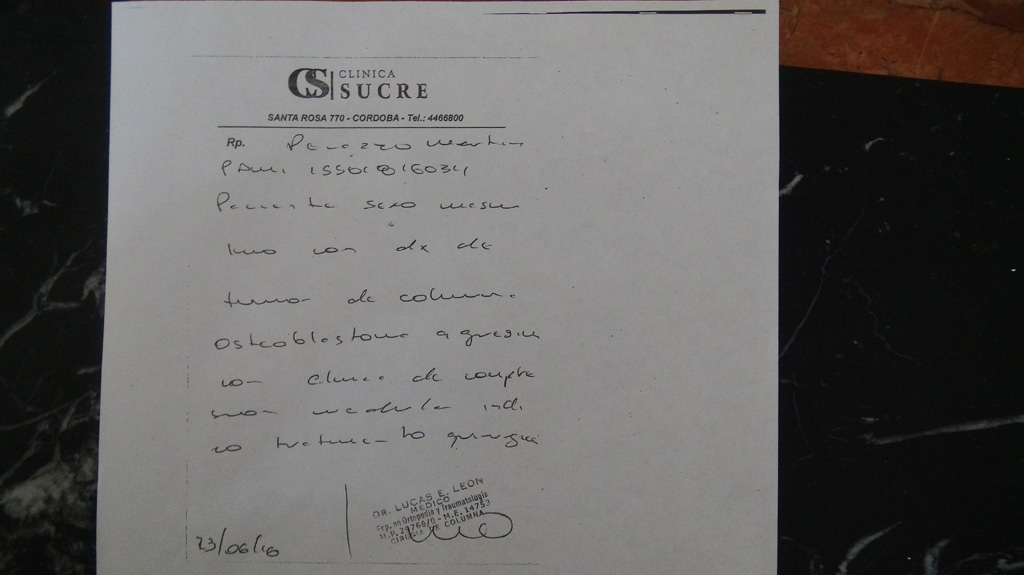 CS CLINICA
SUCRE
SANTA ROSA 770 - CORDOBA - Tel.: 4466800
Rp. Martin
PAMI
Paciente sexo mascu
lino con dx de
tumor de columna
Osteoblastoma agresivo
con clinica de compre
sion medular indi
co tratamiento quirurgico
DR. LUCAS E. LEON
MEDICO
Esp. en Ortopedia y Traumatologia
M.P. M.E. 14753
CIRUGIA DE COLUMNA
23/06/16